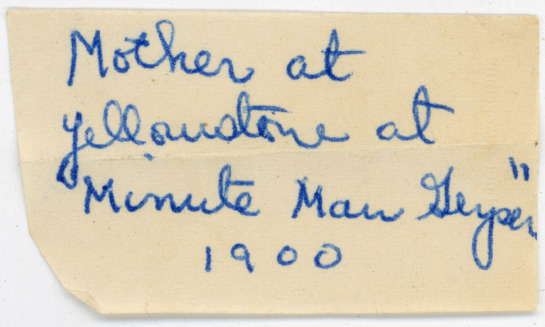 Mother at
Yellowstone at
"Minute Man Geyser"
1900